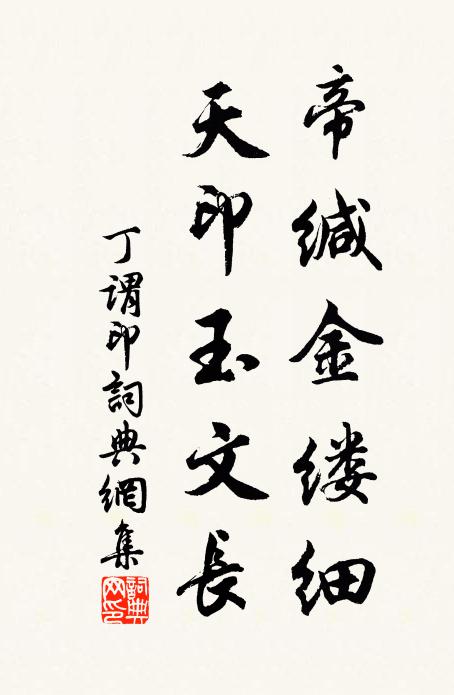 帝缄金缕细
天印玉文長
丁謂印詞典網集
詞典网印